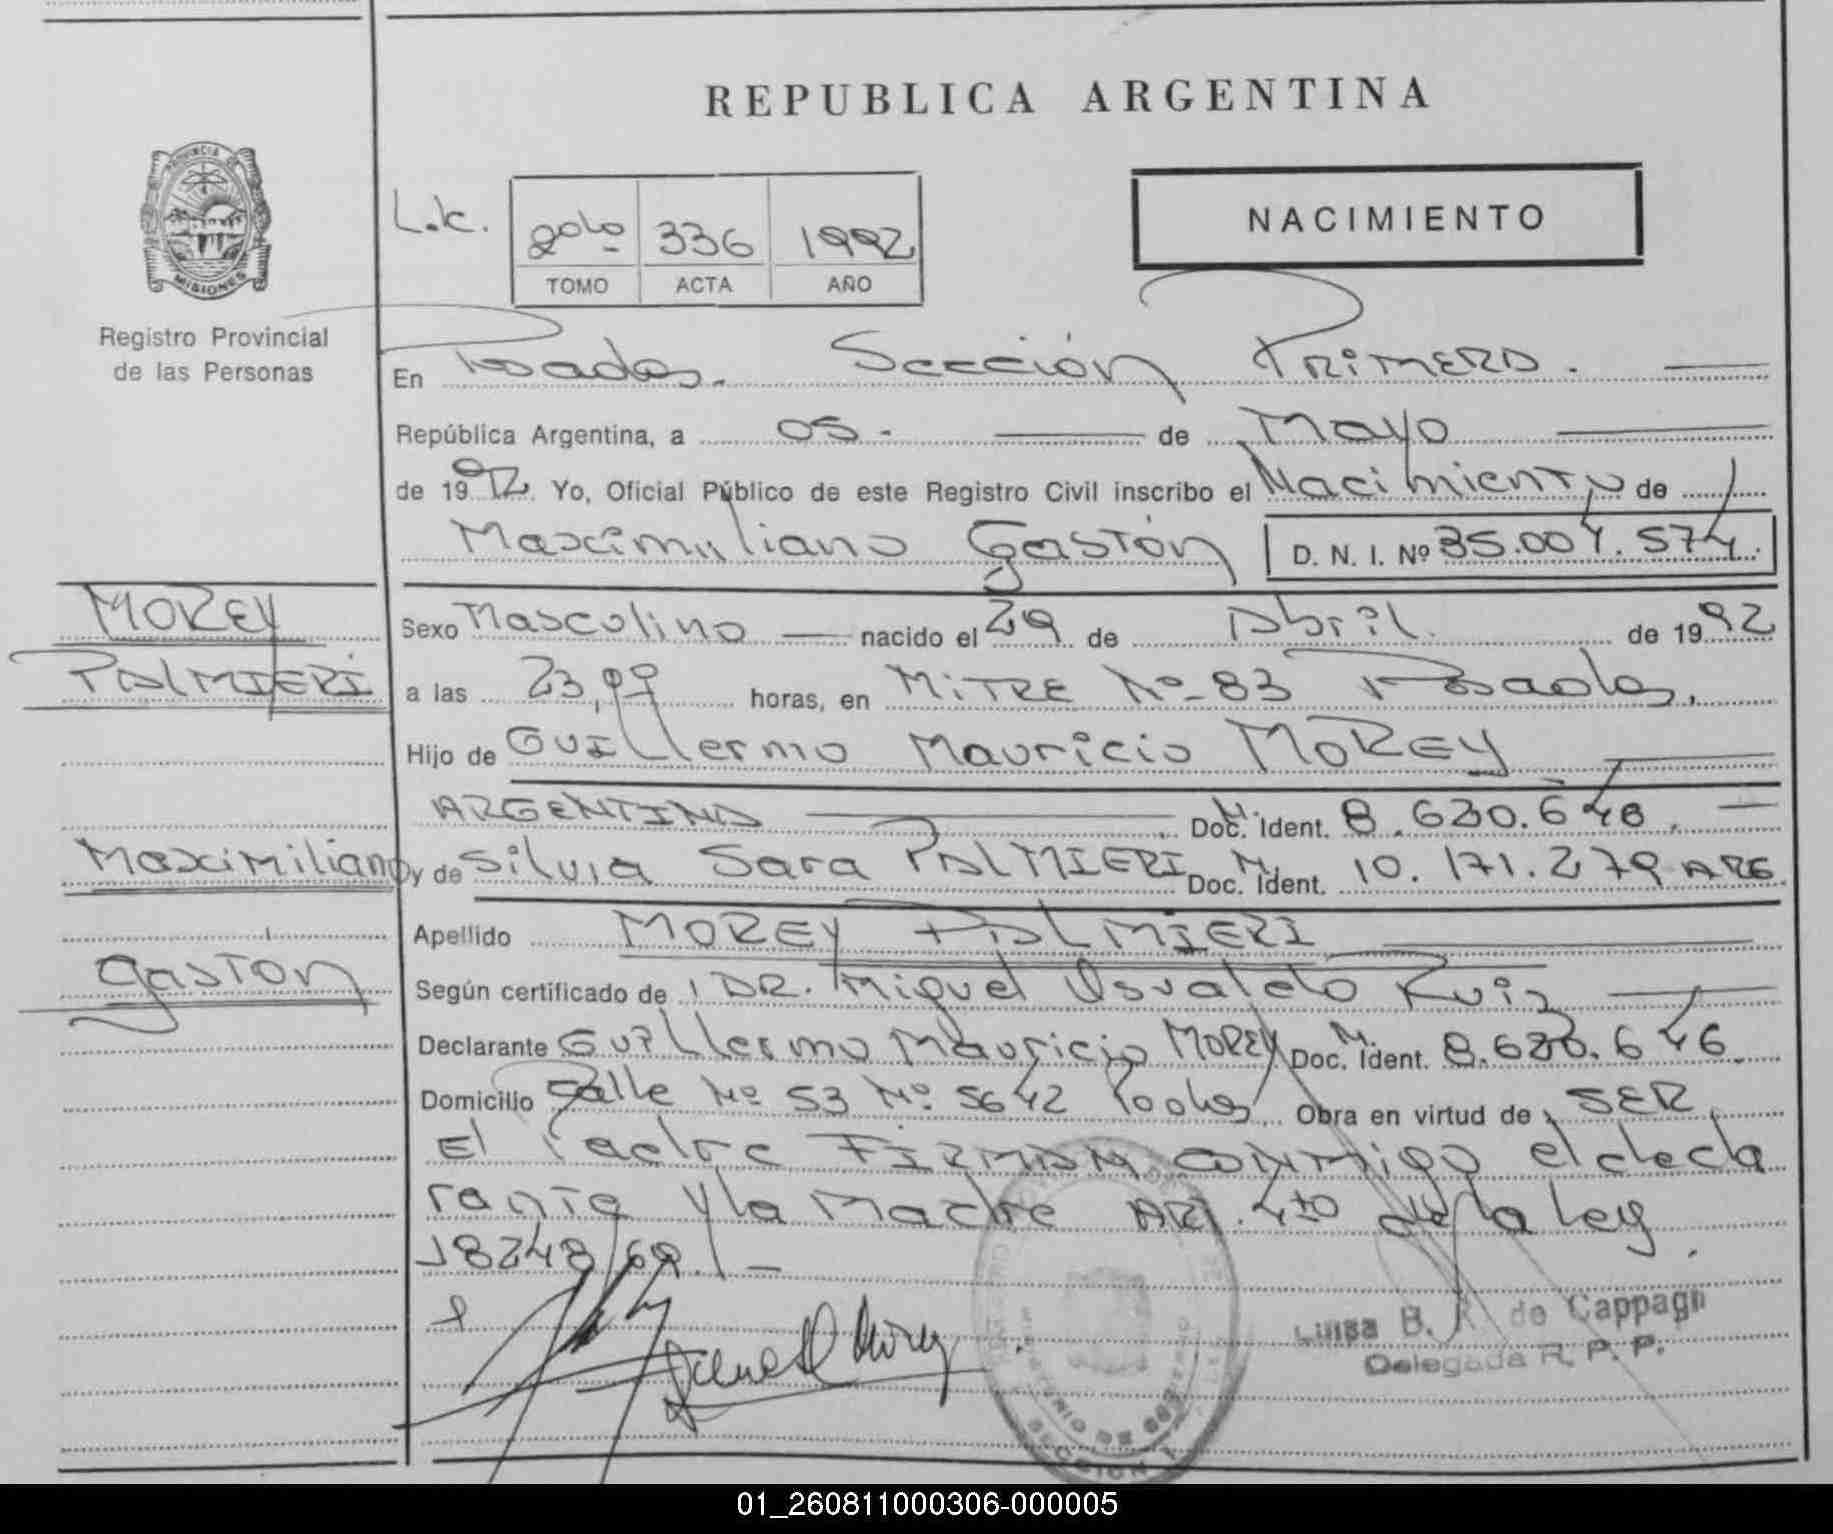 REPUBLICA ARGENTINA
PROVINCIA DE
MISIONES
Registro Provincial
de las Personas
L.c.
336 1992
TOMO ACTA AÑO
NACIMIENTO
En Posadas. Sección Primera.
República Argentina, a 05. de Mayo
de 1992. Yo, Oficial Público de este Registro Civil inscribo el Nacimiento de
Maximiliano Gastón D. N. I. Nº 35.004.574.
MOREY
PALMIERI
Maximiliano
Gaston
Sexo Masculino nacido el 29 de Abril. de 1992
a las 23, horas, en MITRE Nº 83 Posadas.
Hijo de Guillermo Mauricio MOREY
ARGENTINA Doc. M. Ident. 8.630.646.
y de Silvia Sara PALMIERI Doc. M. Ident. 10.171.279 ARG
Apellido MOREY PALMIERI
Según certificado de DR. Miguel Osvaldo Ruiz
Declarante Guillermo Mauricio MOREY Doc. M. Ident. 8.630.646.
Domicilio Calle Nº 53 Nº 5642 Obra en virtud de SER
El Padre FIRMAN conmigo el decla
rante y la Madre ART. 4to de la ley
18248/69.
SECCION 1
Luisa B. R. de Cappagli
Delegada R. P. P.
01_260811000306-000005